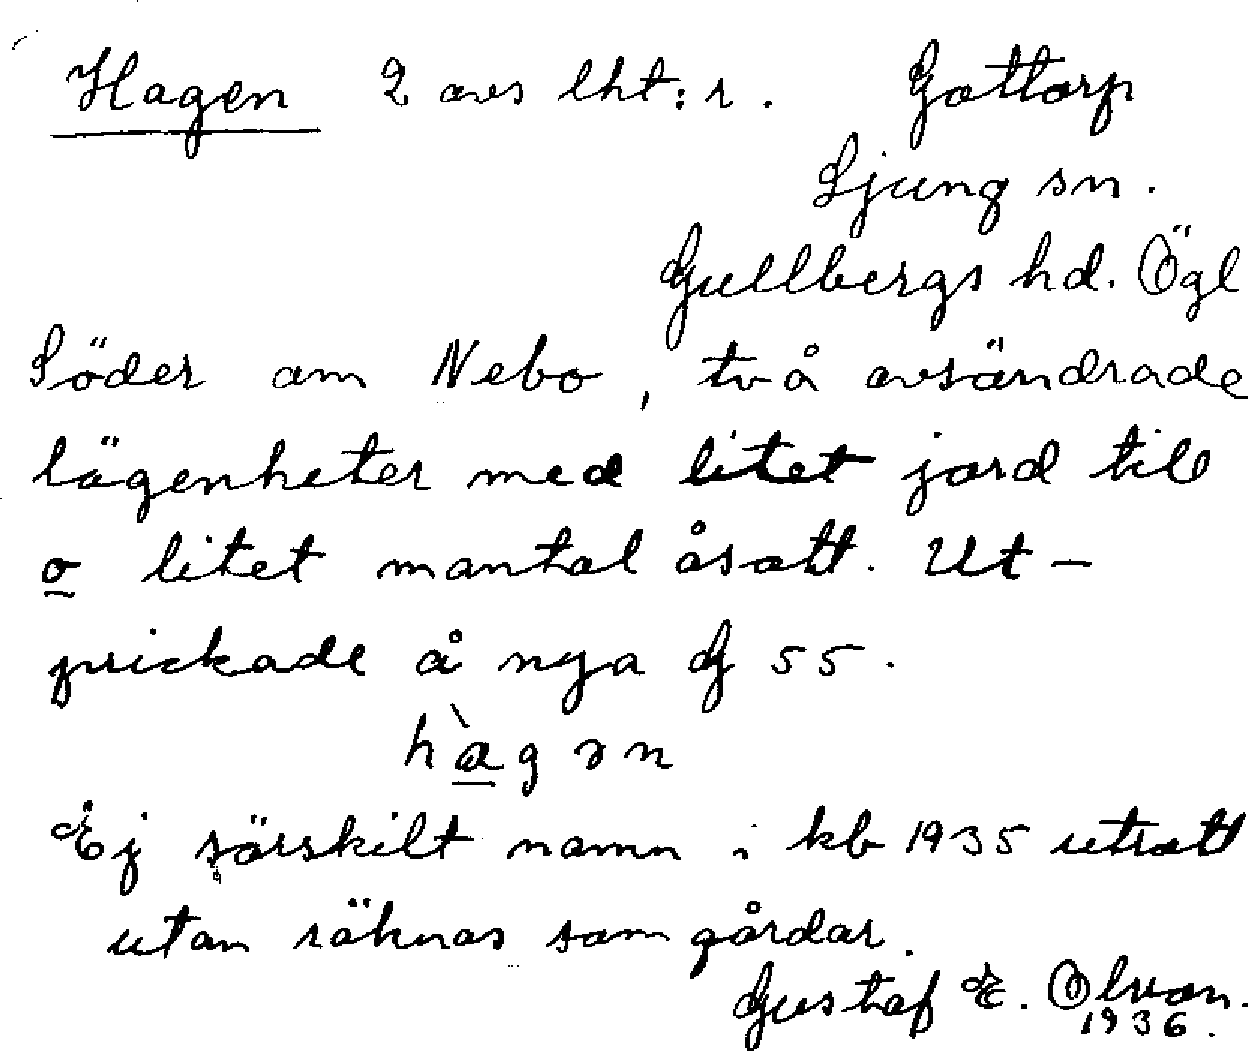 Hagen 2 avs lht:r. Gottorp
Ljung sn.
Gullbergs hd. Ögl
Söder om Nebo, två avsöndrade
lägenheter med litet jord till
o litet mantal åsatt. Ut-
prickade å nya G 55.
hàgən
Ej särskilt namn i kb 1935 utsatt
utan räknas som gårdar.
Gustaf E. Olvon.
1936.